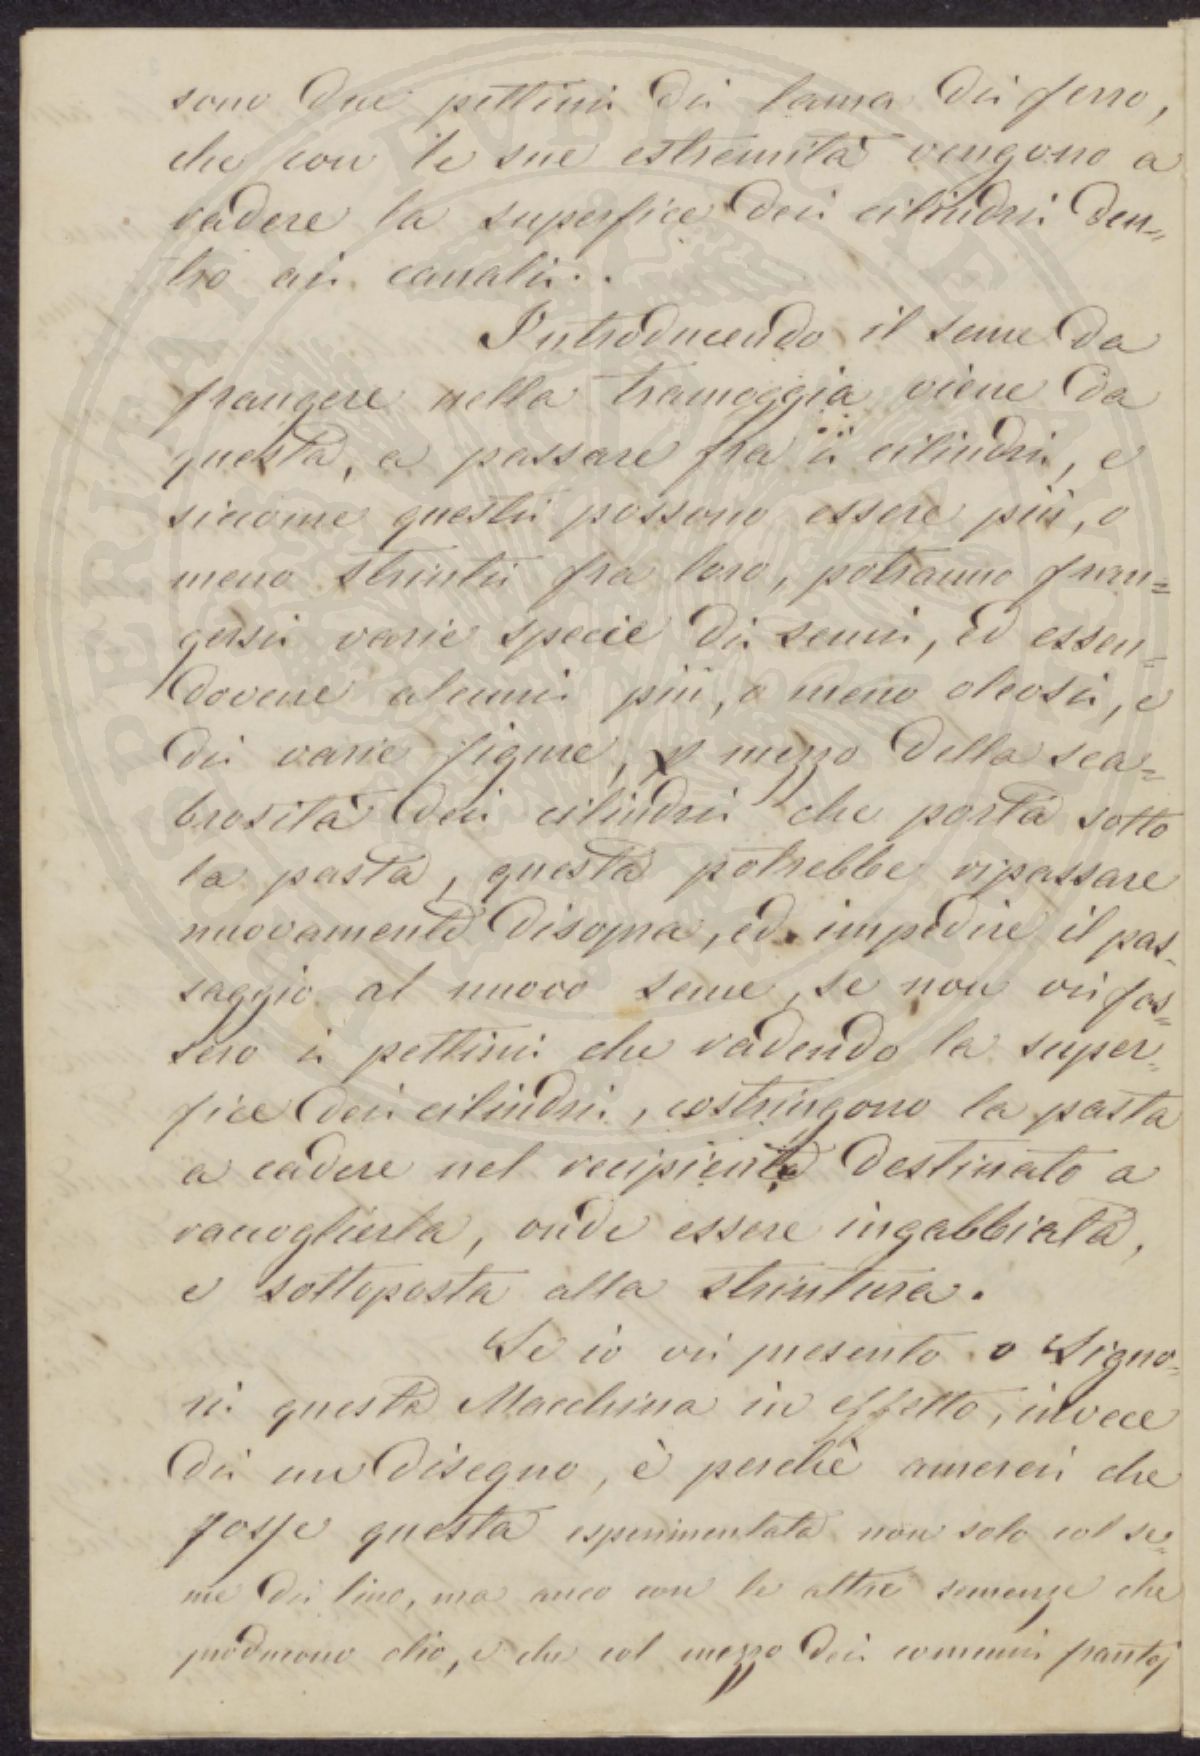 sono due pettini di lama di ferro,
che con le sue estremità vengono a
radere la superfice dei cilindri den=
tro ai canali..
Introducendo il seme da
frangere nella tramoggia viene da
questa, a passare fra i cilindri, e
siccome questi possono essere più, o
meno strinti fra loro, potranno fran=
gersi varie specie di semi, ed essen=
dovene alcuni più, o meno oleosi, e
di varie figure, p mezzo della sca=
brosità dei cilindri che porta sotto
la pasta, questa potrebbe ripassare
nuovamente disopra, ed impedire il pas=
saggio al nuovo seme, se non vi fos=
sero i pettini che radendo la super=
fice dei cilindri, costringono la pasta
a cadere nel recipiente destinato a
raccoglierla, onde essere ingabbiata,
e sottoposta alla strintura.
Se io vi presento o Signo=
ri questa Macchina in effetto, invece
di un disegno, è perchè amerei che
fosse questa esperimentata non solo col se=
me di lino, ma anco con le altre semenze che
producono olio, e che col mezzo dei comuni frantoj
PERITAT PVBLICAE AVGENDAE